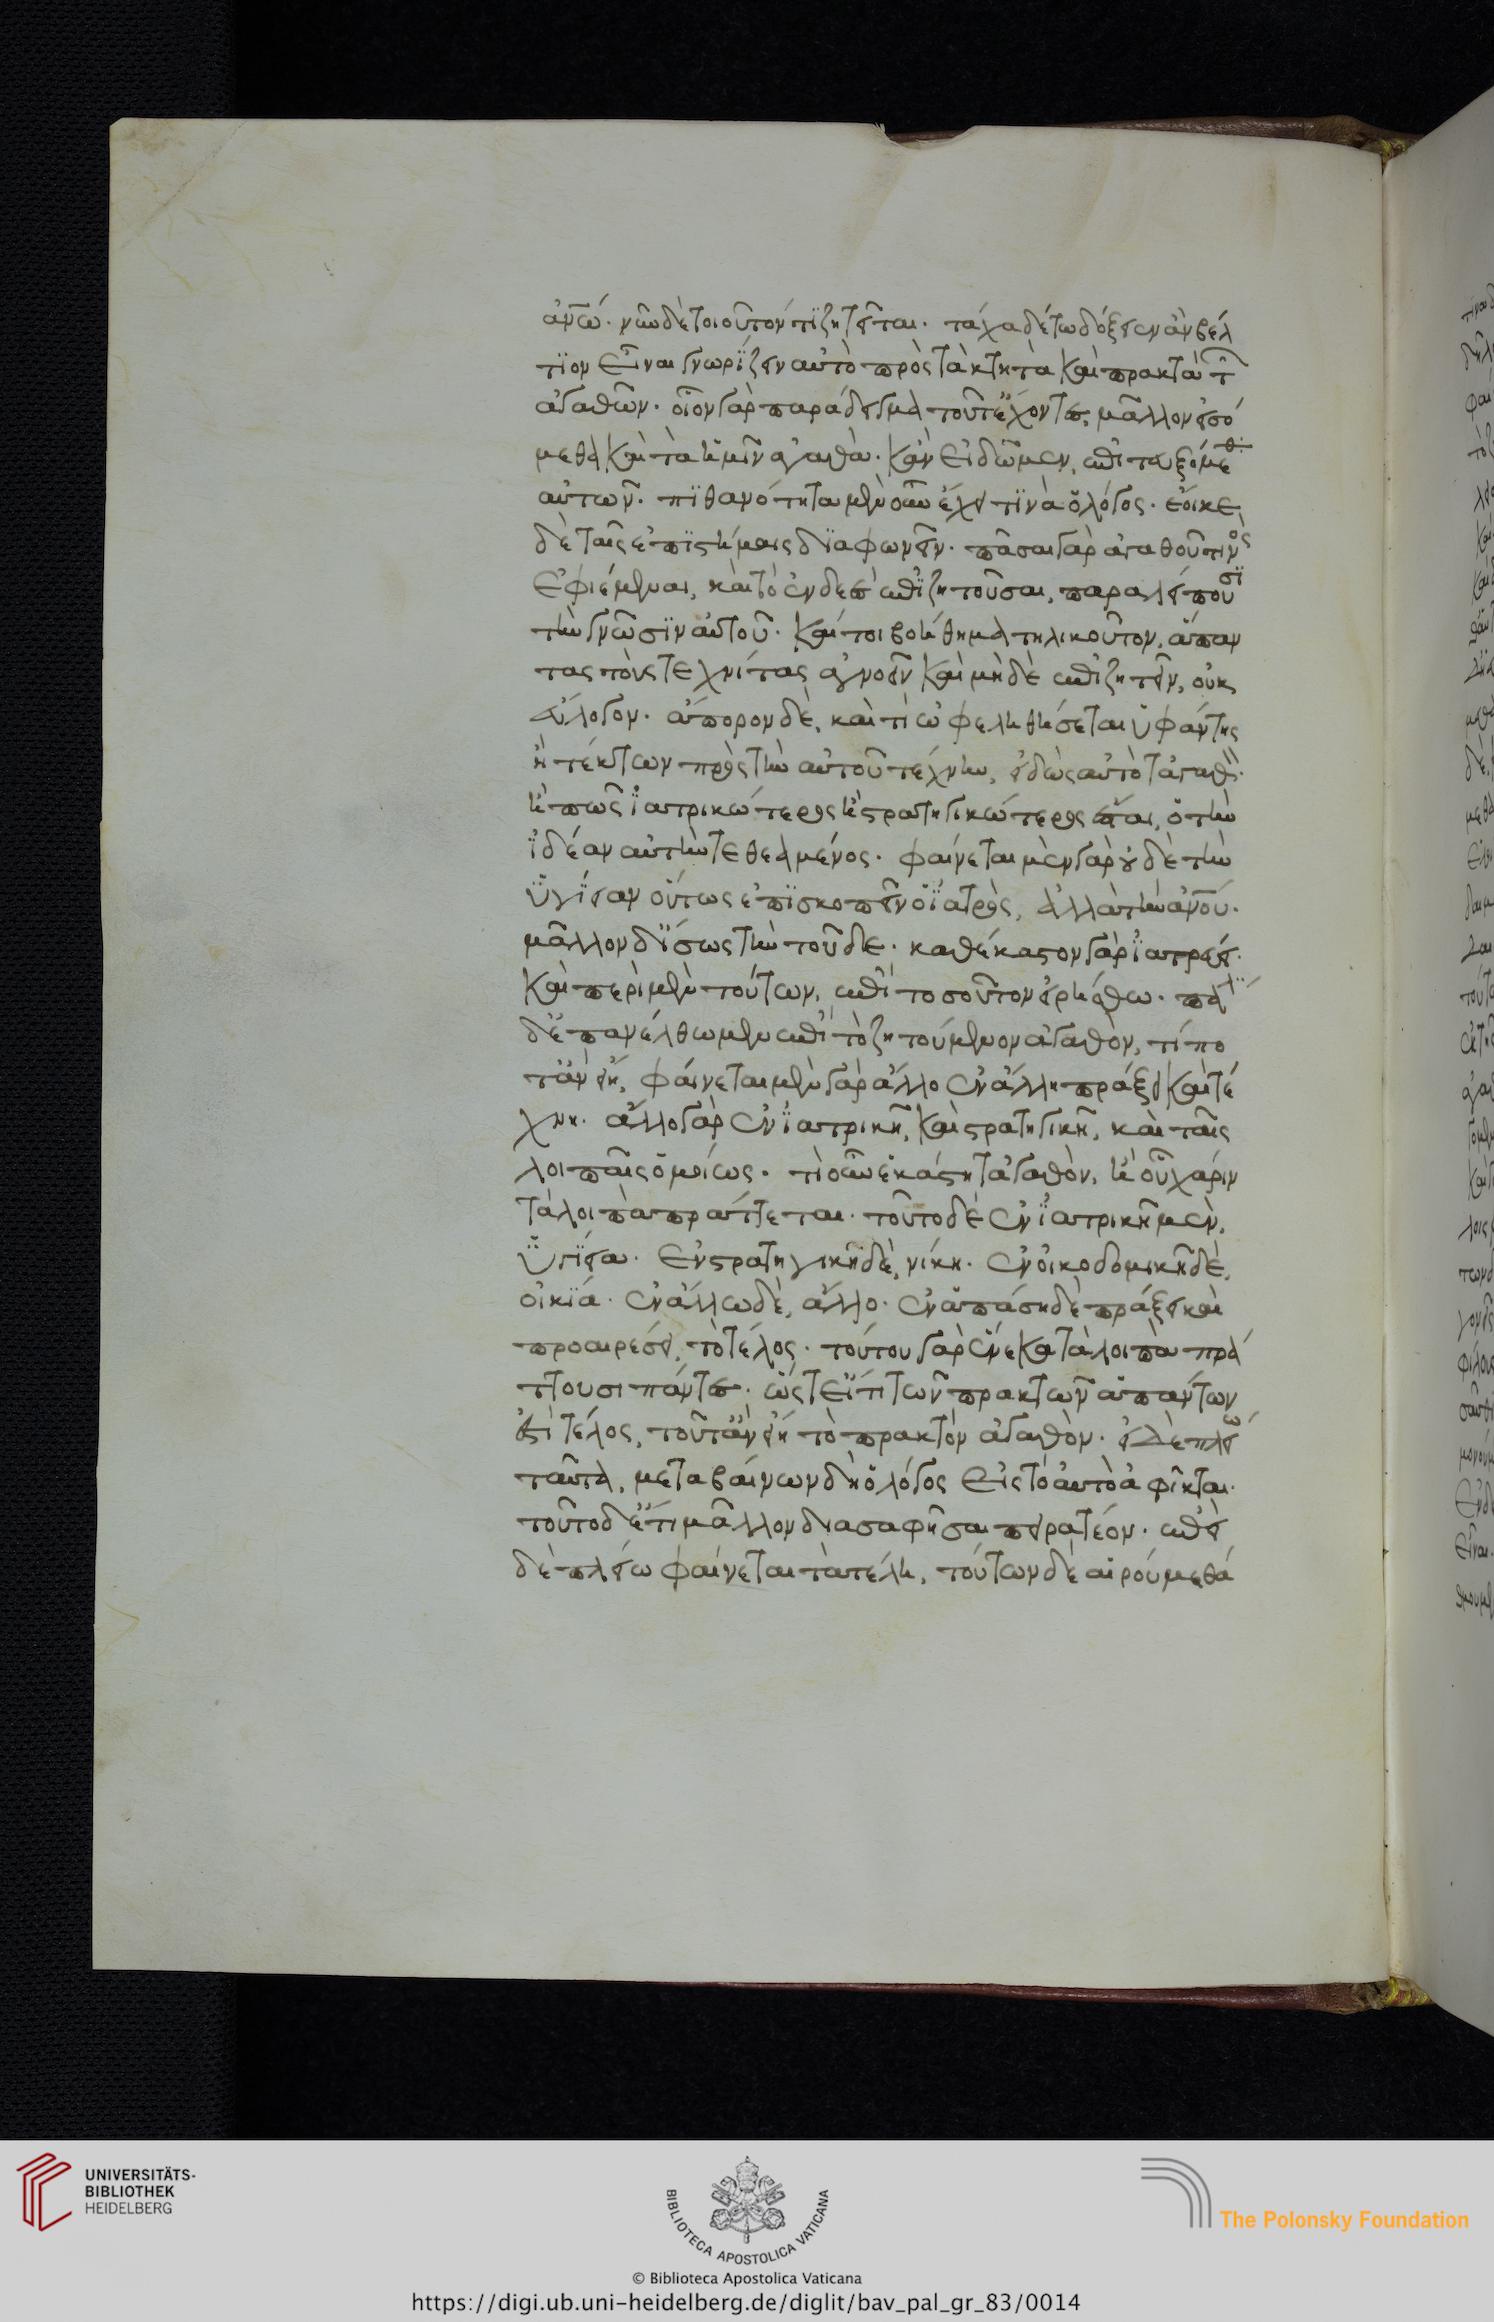 ἀνω. νῦν δὲ τοιοῦτόν τι ζητεῖται. τάχα δέ τω δόξειεν ἂν βέλ
τιον εἶναι γνωρίζειν αὐτὸ πρὸς τὰ κτητὰ καὶ πρακτὰ τῶν
ἀγαθῶν. οἷον γὰρ παράδειγμα τοῦτ' ἔχοντες, μᾶλλον εἰσό
μεθα καὶ τὰ ἡμῖν ἀγαθὰ. κἂν εἰδῶμεν, ἐπιτευξόμεθα
αὐτῶν. πιθανότητα μὲν οὖν ἔχει τινὰ ὁ λόγος. ἔοικε
δὲ ταῖς ἐπιστήμαις διαφωνεῖν. πᾶσαι γὰρ ἀγαθοῦ τινὸς
ἐφιέμεναι, καὶ τὸ ἐνδεὲς ἐπιζητοῦσαι, παραλείπουσι
τὴν γνῶσιν αὐτοῦ. καί τοι βοήθημα τηλικοῦτον, ἅπαν
τας τοὺς τεχνίτας ἀγνοεῖν καὶ μὴ δὲ ἐπιζητεῖν, οὐκ
εὔλογον. ἄπορον δὲ, καὶ τί ὠφεληθήσεται ὑφάντης
ἢ τέκτων πρὸς τὴν αὐτοῦ τέχνην, εἰδὼς αὐτὸ τἀγαθὸν.
ἢ πῶς ἰατρικώτερος ἢ στρατηγικώτερος ἔσται, ὁ τὴν
ἰδέαν αὐτὴν τεθεαμένος. φαίνεται μὲν γὰρ οὐδὲ τὴν
ὑγίειαν οὕτως ἐπισκοπεῖν ὁ ἰατρὸς, ἀλλὰ τὴν ἀνου.
μᾶλλον δ' ἴσως τὴν τοῦδε. καθέκαστον γὰρ ἰατρεύει.
καὶ περὶ μὲν τούτων, ἐπὶ τοσοῦτον εἰρήσθω. πάλιν
δ' ἐπανέλθωμεν ἐπὶ τὸ ζητούμενον ἀγαθὸν, τί πο
τ' ἂν εἴη, φαίνεται μὲν γὰρ ἄλλο ἐν ἄλλη πράξει καὶ τέ
χνη. ἄλλο γὰρ ἐν ἰατρικῆ, καὶ στρατηγικῆ, καὶ ταῖς
λοιπαῖς ὁμοίως. τί οὖν ἑκάστη τἀγαθὸν, ἢ οὗ χάριν
τὰ λοιπὰ πράττεται. τοῦτο δὲ ἐν ἰατρικῆ μὲν,
ὑγίεια. ἐν στρατηγικῆ δὲ, νίκη. ἐν οἰκοδομικῆ δὲ,
οἰκία. ἐν ἄλλω δὲ, ἄλλο. ἐν ἁπάση δὲ πράξει καὶ
προαιρέσει, τὸ τέλος. τούτου γὰρ ἕνεκα τὰ λοιπὰ πρά
ττουσι πάντες. ὥστ' εἴ τι τῶν πρακτῶν ἁπάντων
ἐστὶ τέλος, τοῦτ' ἂν εἴη τὸ πρακτὸν ἀγαθὸν. εἰ δὲ πλείω
ταῦτα, μεταβαίνων δὴ ὁ λόγος εἰς τὸ αὐτὸ ἀφῖκται.
τοῦτο δ' ἔτι μᾶλλον διασαφῆσαι πειρατέον. ἐπεὶ
δὲ πλείω φαίνεται τὰ τέλη, τούτων δὲ αἱρούμεθά
UNIVERSITÄTS-
BIBLIOTHEK
HEIDELBERG
BIBLIOTECA APOSTOLICA VATICANA
The Polonsky Foundation
© Biblioteca Apostolica Vaticana
https://digi.ub.uni-heidelberg.de/diglit/bav_pal_gr_83/0014